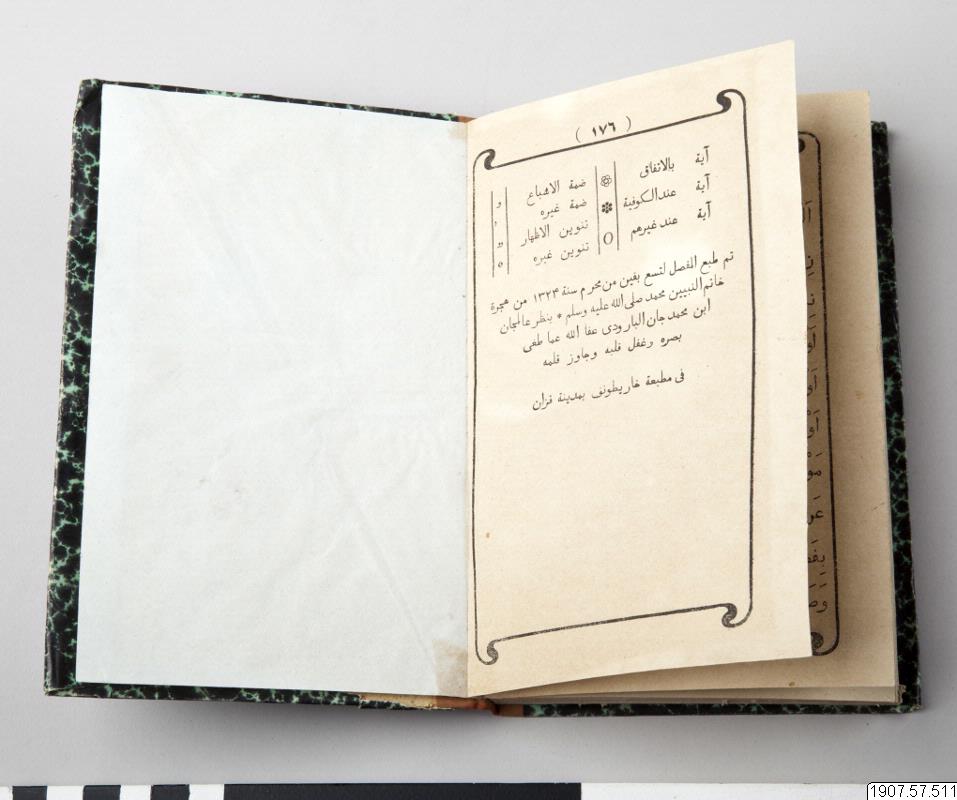 ( ١٧٦ )
آية بالاتفاق
آية عند الكوفية
آية عند غيرهم
ضمة الاشباع و
ضمة غيره
تنوين الاظهار
تنوين غيره
تم طبع المفصل لتسع بقين من محرم سنة ١٣٢۴ من هجرة
خاتم النبيين محمد صلى الله عليه وسلم * بنظر عالمجان
ابن محمد جان البارودى عفا الله عما طغى
بصره وغفل قلبه وجاوز قلمه
فى مطبعة خاريطونف بمدينة قزان
1907.57.511